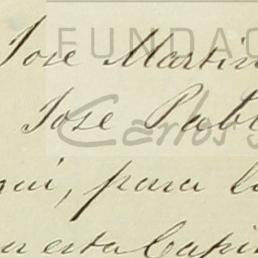 FUNDAC
Jose Martin
Jose Pabl
Carlos
qui, para l
n esta Capi